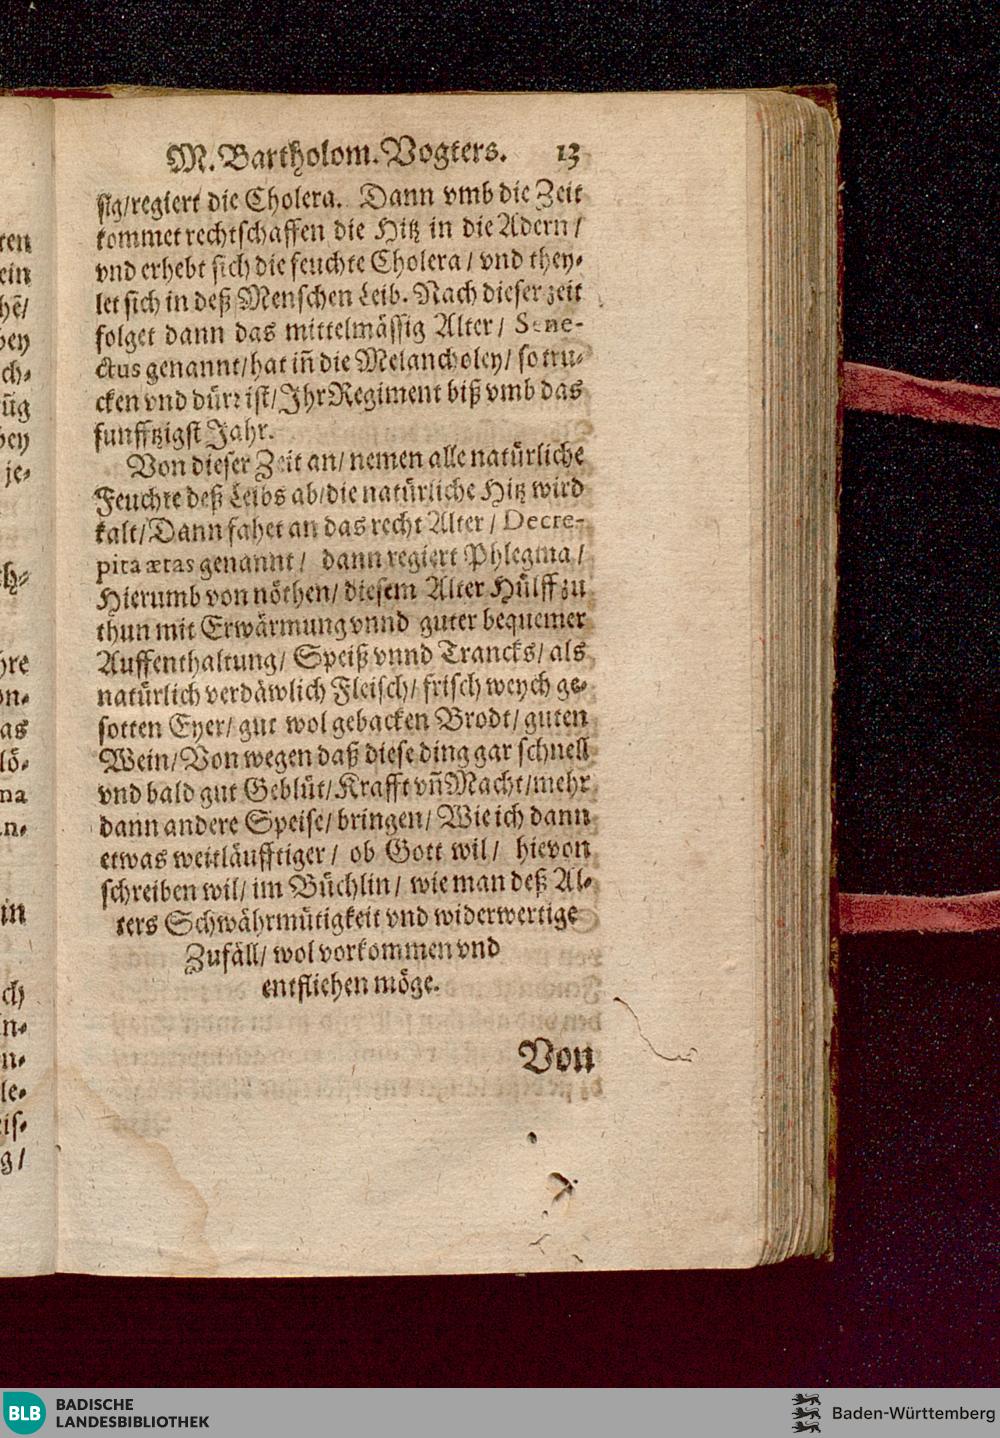 M. Bartholom. Vogters. 13
sig/regiert die Cholera. Dann vmb die Zeit
kommet rechtschaffen die Hitz in die Adern/
vnd erhebt sich die feuchte Cholera/ vnd they-
let sich in deß Menschen Leib. Nach dieser zeit
folget dann das mittelmässig Alter/ Sene-
ctus genannt/hat iñ die Melancholey/ so tru-
cken vnd dürr ist/Jhr Regiment biß vmb das
funfftzigst Jahr.
Von dieser Zeit an/ nemen alle natürliche
Feuchte deß Leibs ab/die natürliche Hitz wird
kalt/Dann fahet an das recht Alter/ Decre-
pita ætas genannt/ dann regiert Phlegma/
Hierumb von nöthen/ diesem Alter Hülff zu
thun mit Erwärmung vnnd guter bequemer
Auffenthaltung/ Speiß vnnd Trancks/ als
natürlich verdäwlich Fleisch/ frisch weych ge-
sotten Eyer/ gut wol gebacken Brodt/ guten
Wein/Von wegen daß diese ding gar schnell
vnd bald gut Geblüt/Krafft vñ Macht/mehr
dann andere Speise/ bringen/ Wie ich dann
etwas weitläufftiger/ ob Gott wil/ hievon
schreiben wil/ im Büchlin/ wie man deß Al-
ters Schwährmütigkeit vnd widerwertige
Zufäll/ wol vorkommen vnd
entfliehen möge.
Von
BLB BADISCHE
LANDESBIBLIOTHEK
Baden-Württemberg